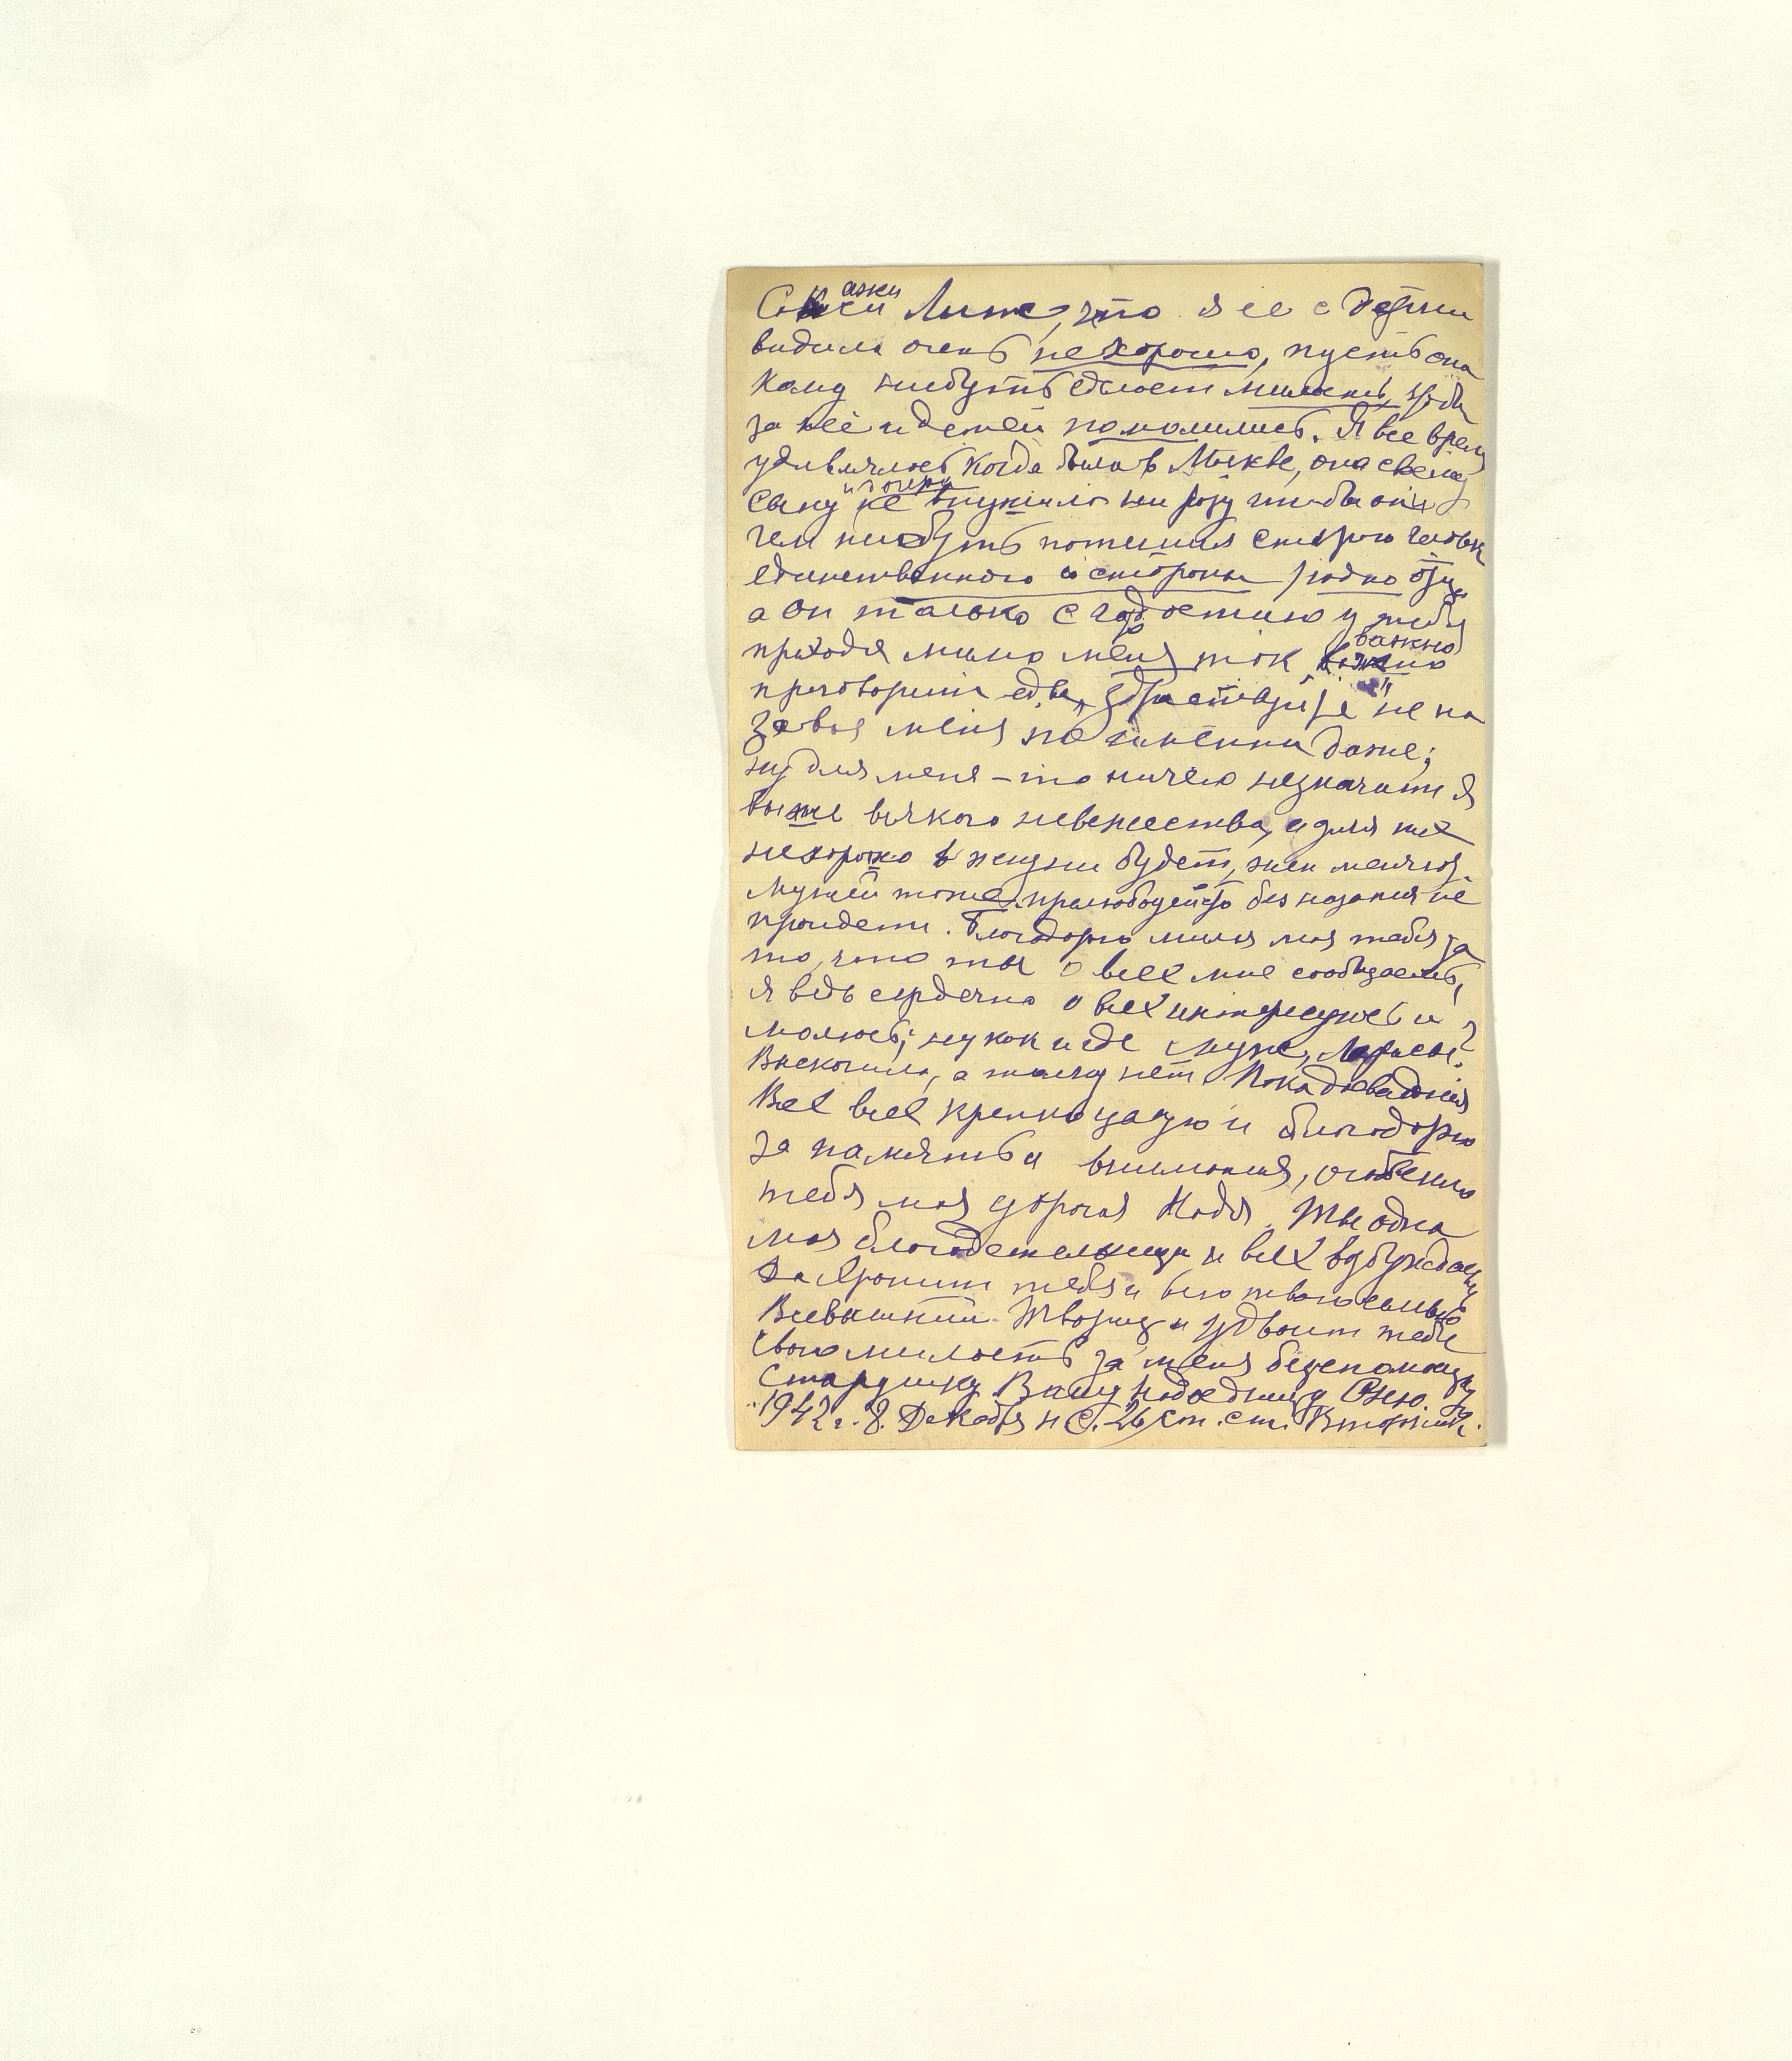 Скажи Лизе, что я ее с детьми
видила очень нехорошо, пусть она
кому нибуть сделает милость, чтобы
за неё и детей помолились. Я все время
удивлялась когда была в Москве, она своему
сыну и дочери не внушила ни разу чтобы они
чем нибудь потешил старого человека
единственного со стороны родного отца
а он только с гордостию у тебя
приходя мимо меня так важно
проговорит едва, "здраствуйте" не на
зовя меня по имени даже;
ну для меня – то ничего незначит я
выше всякого невежества, а для них
нехорошо в жизни будет, жен меняют,
мужей тоже, прелюбодейство без наказания не
пройдет. Благодарю милая моя тебя за
то, что ты о всех мне сообщаешь,
я ведь сердечно о всех интересуюсь и
молюсь; ну как и где муж, Ларисы?
Выскочила, а толку нет. Пока досвидания
Всех всех крепко цалую и благодарю
за память и внимания, особенно
тебя моя дорогая Надя. Ты одна
моя благодетельница и всех возбуждаешь
Да хранит тебя и всю твою семью
Всевышний Творец и удвоит тебе
свою милость за меня безпомощную
старушку Вашу надоедницу Олю.
1942 г. 8. Декабря н С. 26 ст. ст. Вторник.